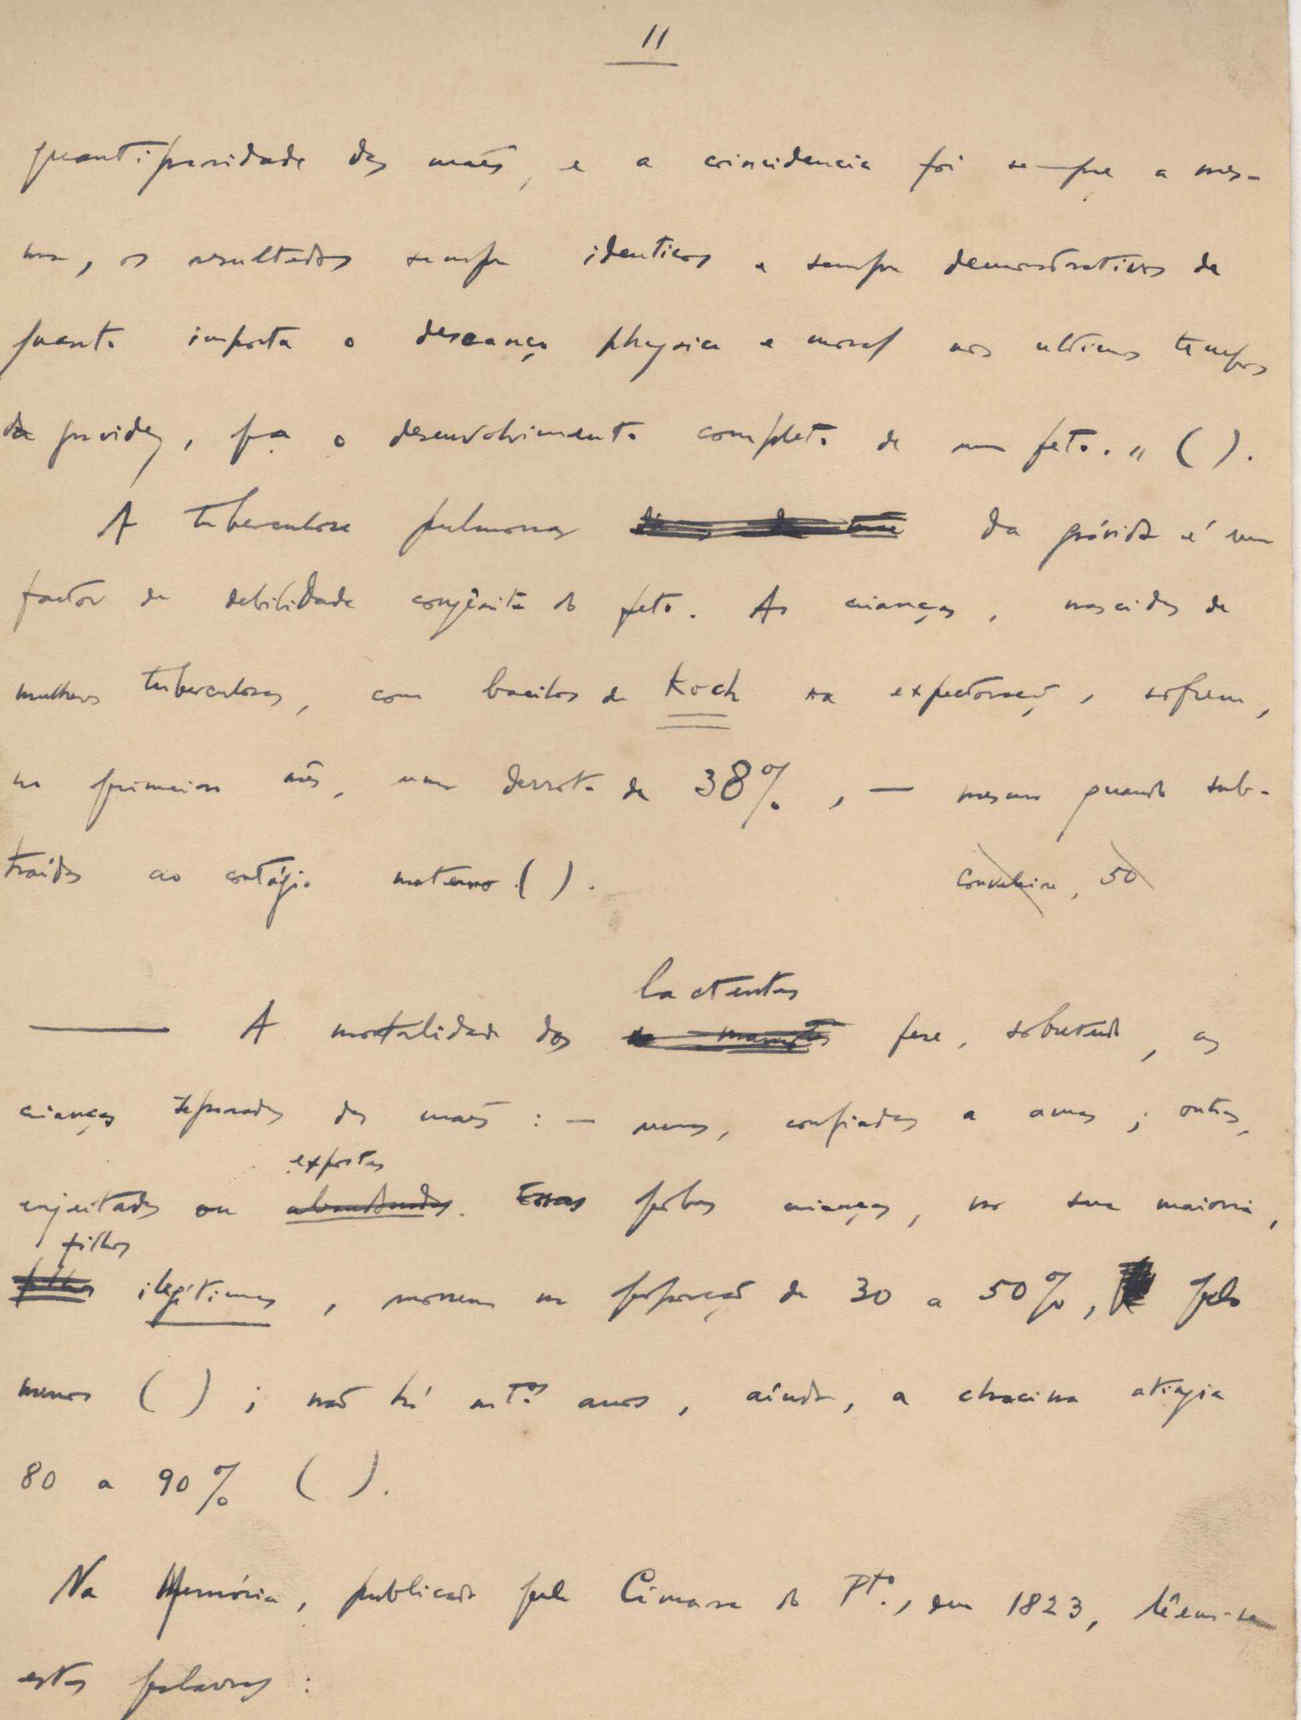 11
quantiparidade das maẽs, e a coincidencia foi sempre a mes-
ma, os resultados sempre identicos e sempre demonstrativos de
quanto importa o descanço physico e moral nos ultimos tempos
da gravidez, pa o desenvolvimento completo de um feto. " ( ).
A tuberculose pulmonar da grávida é um
factor de debilidade congênita do feto. As crianças, nascidas de
mulheres tuberculosas, com bacilos de Koch na expectoração, sofrem,
no primeiro mês, uma derrota de 38%, — mesmo quando sub-
traídas ao contágio materno ( ).
, 50
lactentes
— A mortalidade dos fere, sobretudo, as
crianças separadas das maẽs : — umas, confiadas a amas ; outras,
expostas
enjeitadas ou abandonadas. Essas pobres crianças, na sua maioria,
filhos
filhos ilegítimos, morrem na proporção de 30 a 50%, pelo
menos ( ) ; não há mtos anos, ainda, a chacina atingia
80 a 90% ( ).
Na Memória, publicada pela Câmara do Pto., em 1823, lêem-se
estas palavras :